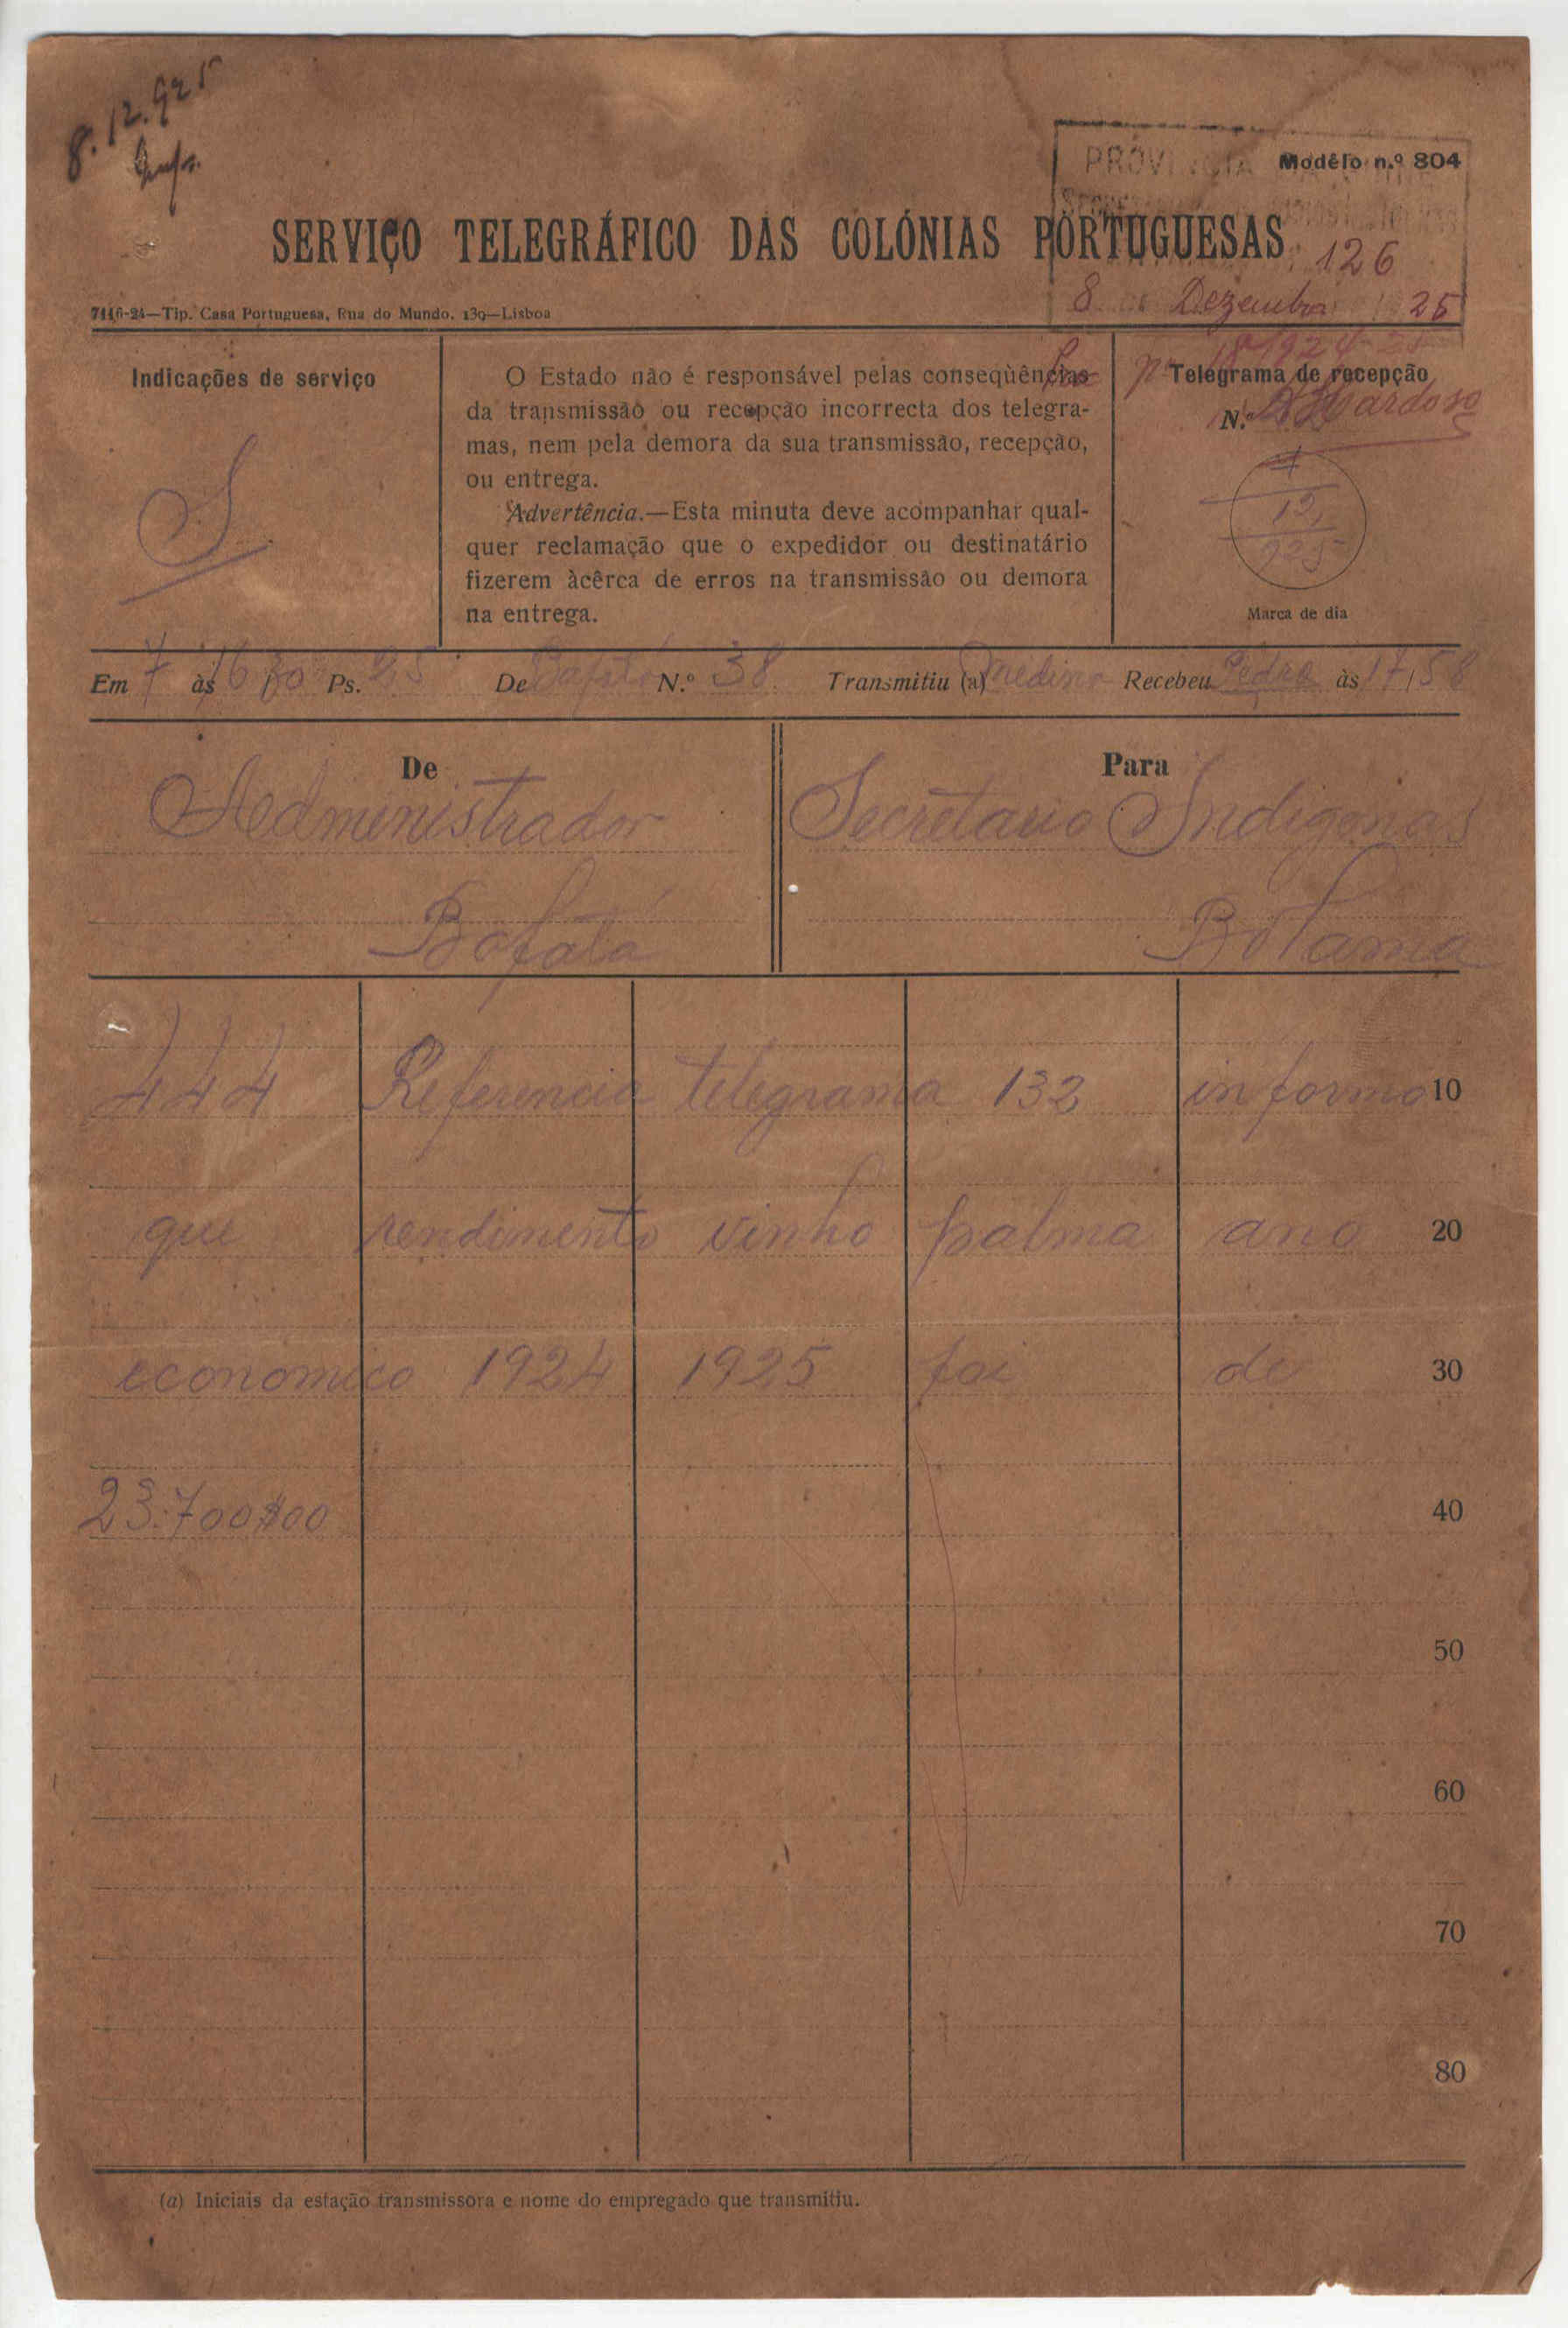 8.12.925
PROVINCIA DA GUINÉ
Modêlo n.º 804
SERVIÇO TELEGRÁFICO DAS COLÓNIAS PORTUGUESAS
126
8 de Dezembro 1925
7446-24—Tip. Casa Portuguesa, Rua do Mundo, 139—Lisboa
Indicações de serviço
S
O Estado não é responsável pelas conseqùências
da transmissão ou recepção incorrecta dos telegra-
mas, nem pela demora da sua transmissão, recepção,
ou entrega.
Advertência.—Esta minuta deve acompanhar qual-
quer reclamação que o expedidor ou destinatário
fizerem àcêrca de erros na transmissão ou demora
na entrega.
1924-25
Telegrama de recepção
N.º
Cardoso
7
12
925
Marca de dia
Em 7 às 16,30 Ps. 25 De Bafatá N.º 38 Transmitiu (a) Medina Recebeu Pedro às 17,58
De
Administrador
Bafatá
Para
Secretario Indigenas
Bolama
444 Referencia telegrama 132 informo 10
que rendimento vinho palma ano 20
economico 1924 1925 foi de 30
23.700$00 40
50
60
70
80
(a) Iniciais da estação transmissora e nome do empregado que transmitiu.